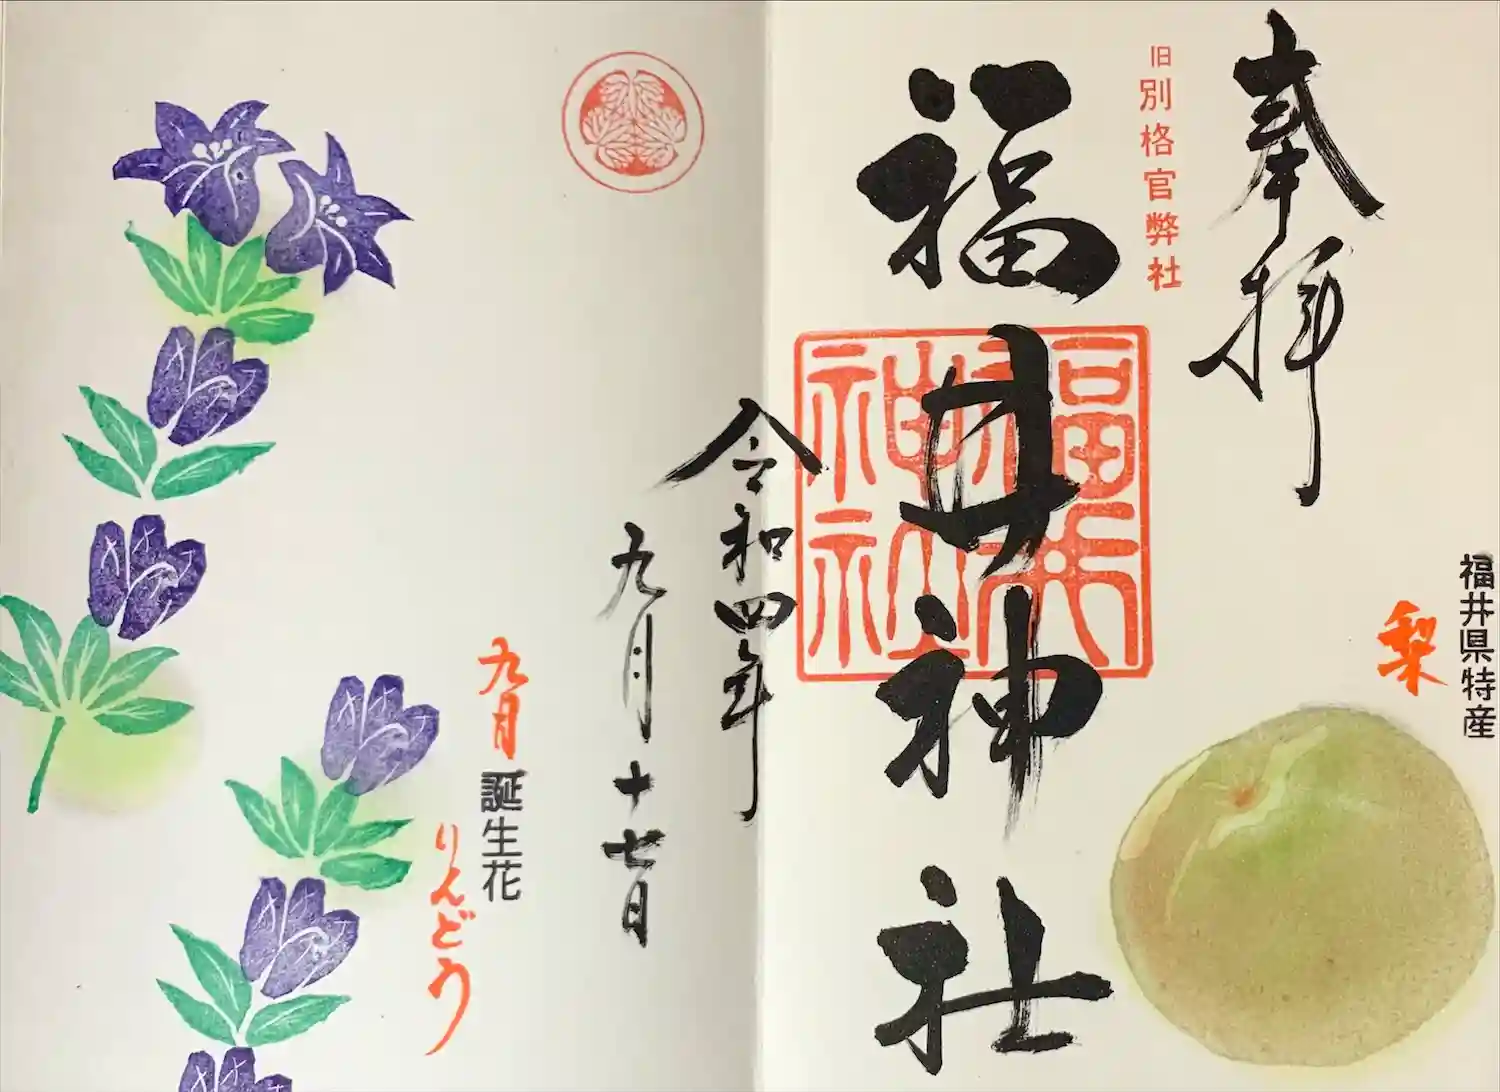 奉拝
旧別格官弊社
福井神社
福井神社
福井県特産
梨
令和四年
九月十七日
九月
誕生花
りんどう